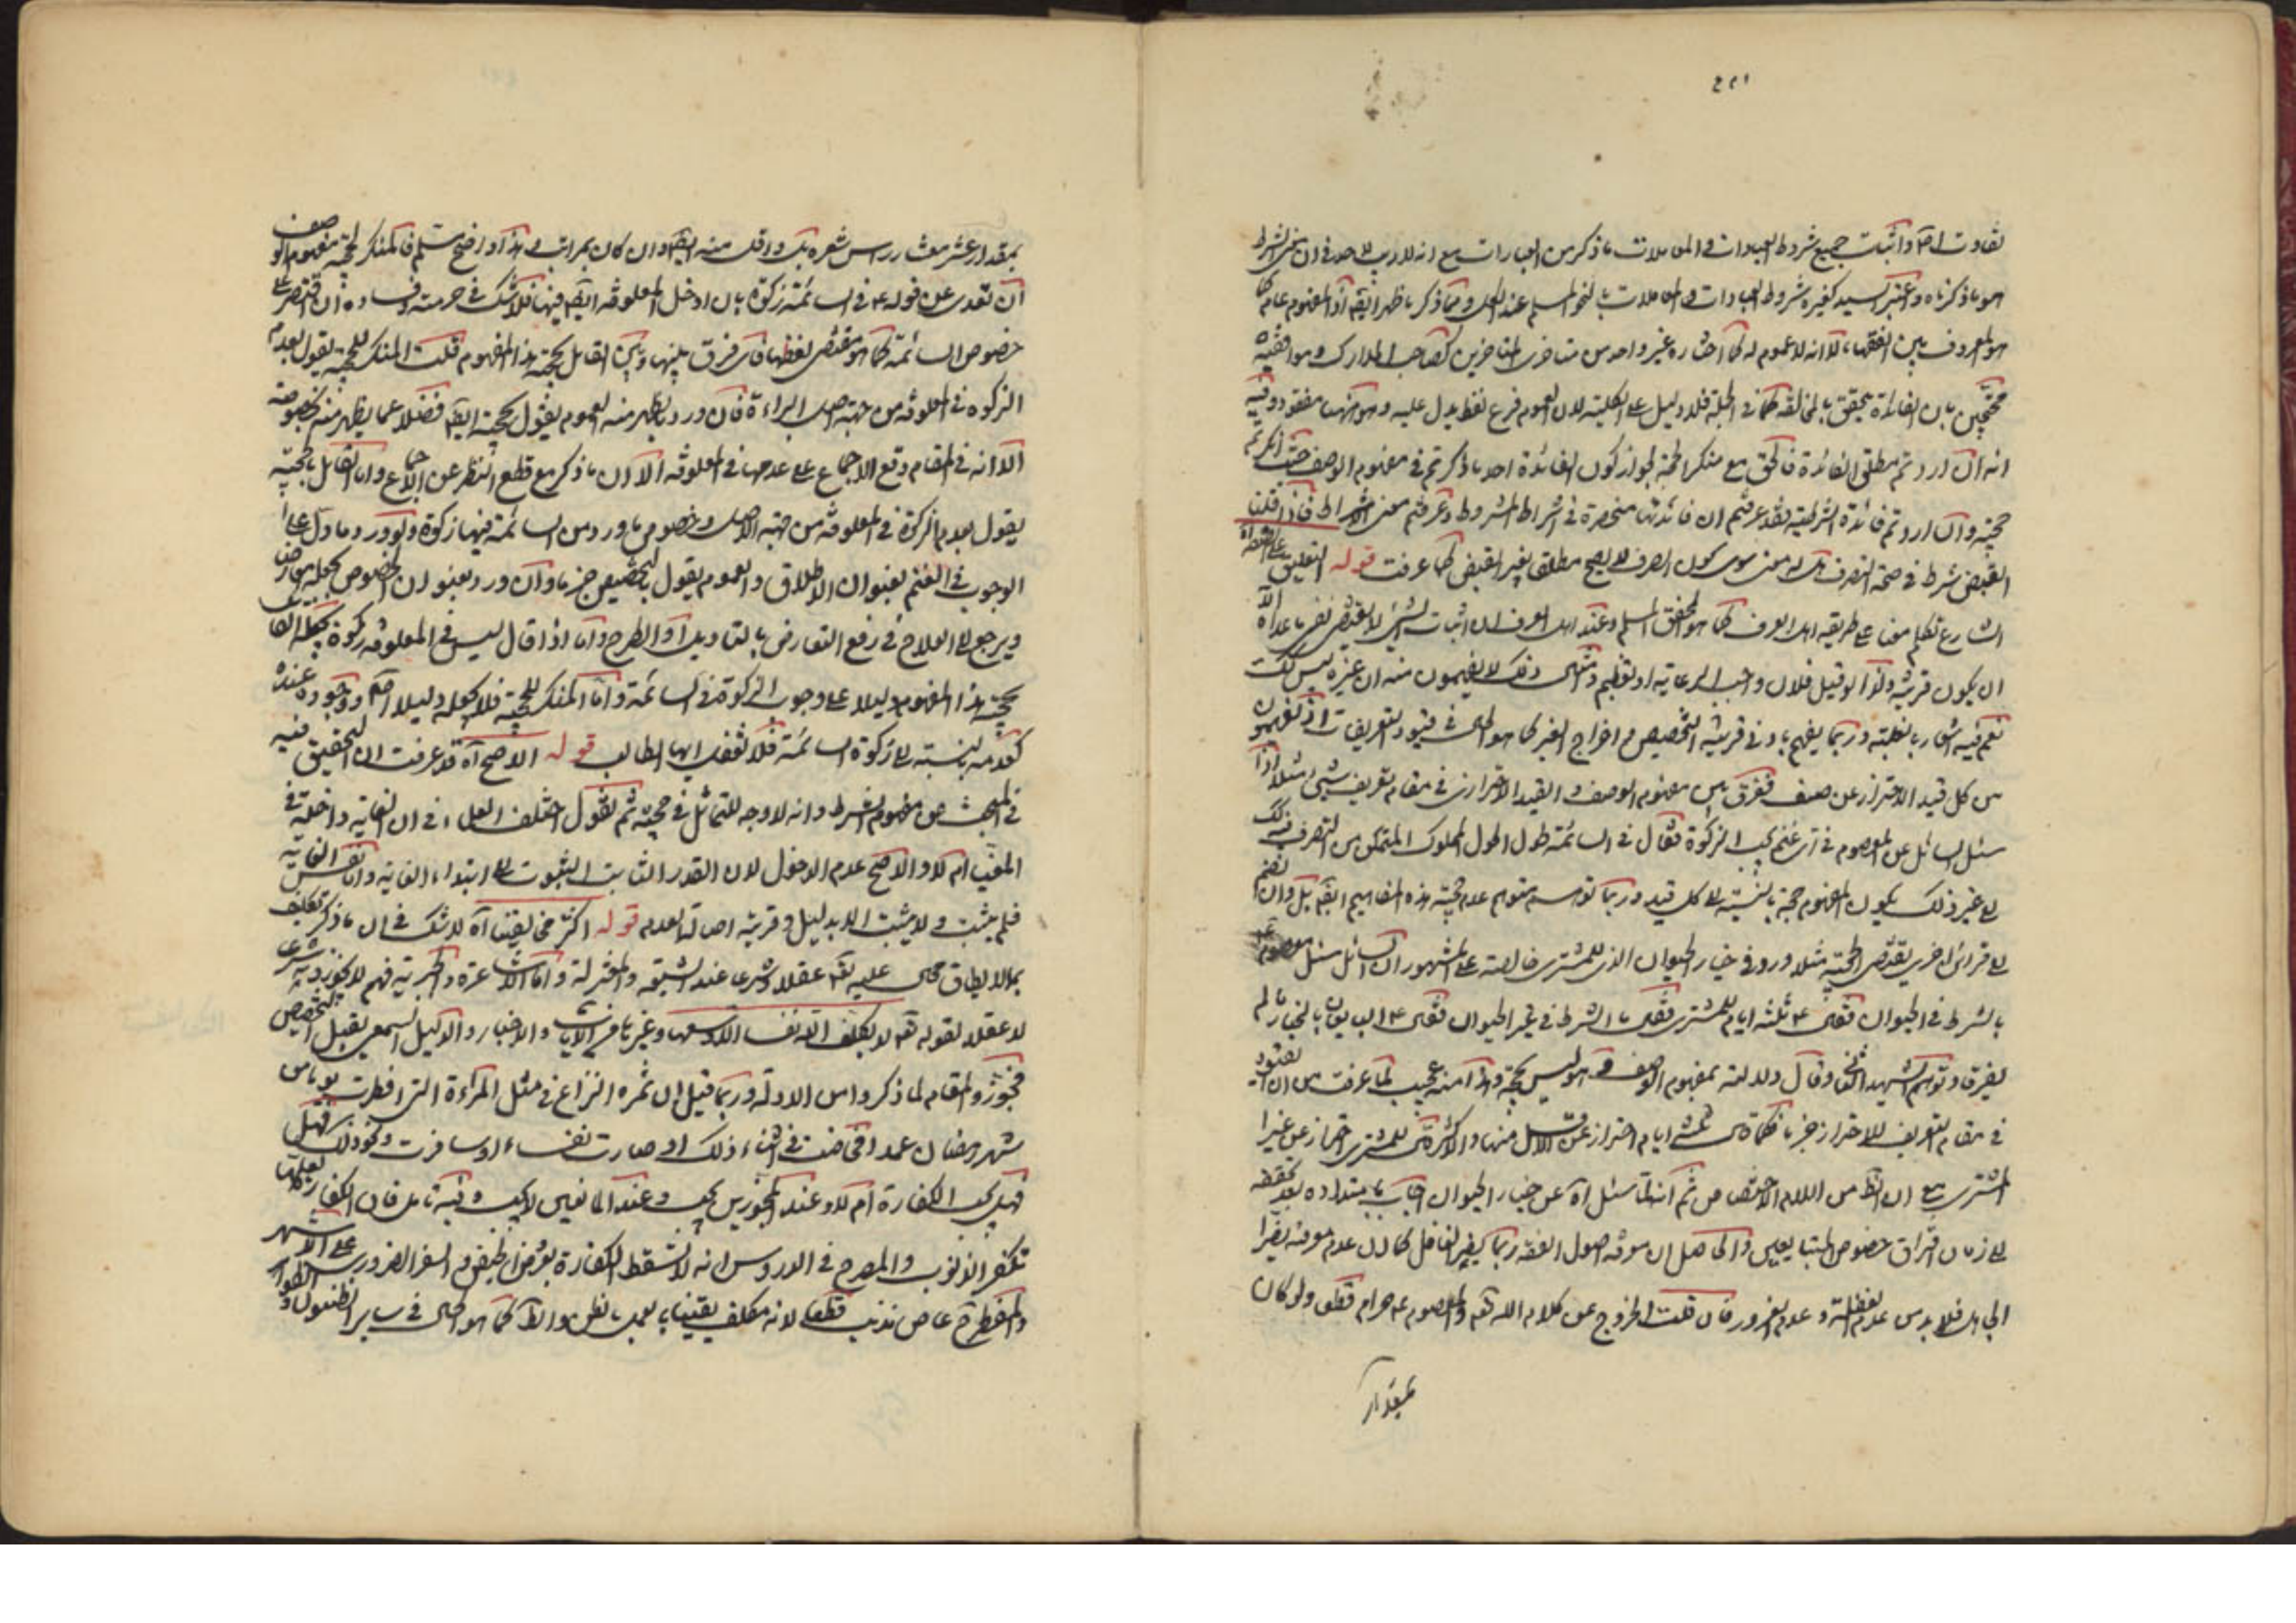 تفاوت اصلا واثبت جميع شروط العبادات في المعاملات ما ذكر من العبارات مع انه لا ريب لاحد في ان معنى الشرط
هو ما ذكرناه واعتبر السيد كغيره شروط العبادات والمعاملات بالنحو المسلم عند الكل ومما ذكر ظهر ايضا ان المفهوم عام كما
هو المعروف بين الفقهاء لا انه لا عموم له كما اختاره غير واحد من متأخري المتأخرين كصاحب المدارك وموافقيه
محتجين بان الفائدة يتحقق بالمخالفة في الجملة فلا دليل على الكلية لان العموم فرع لفظ يدل عليه وهو مفقود وفيه
انه ان اردتم مطلق الفائدة فالحق مع منكر الحجية لجواز كون الفائدة احد ما ذكرتم في مفهوم الوصف حيث انكرتم
حجيته وان اردتم فائدة الشرطية فقد عرفتم ان فائدتها منحصرة في اشتراط المشروط وعرفتم معنى الاشتراط فاذا قلنا
القبض شرط في صحة الصرف ليس له معنى سوى كون الصرف لا يصح مطلقا بغير القبض كما عرفت قوله التعليق على الصفة آه
الشارع تكلم معنا على طريقة اهل العرف كما هو المحقق المسلم وعند اهل العرف ان اثبات الشيء لا يقتضي نفي ما عداه الا
ان يكون قرينة ولذا لو قيل فلان واجب الرعاية او التعظيم وامثال ذلك لا يفهمون منه ان غيره ليس كذلك
نعم فيه اشعار بالعلية وربما يفهم بادنى قرينة التخصيص واخراج الغير كما هو الحال في قيود التعريفات اذ يفهمون
من كل قيد الاحتراز عن صنف ففرق بين مفهوم الوصف والقيد الاحترازي في مقام تعريف شيء مثلا اذا
سئل السائل عن المعصوم في اي غنم يجب الزكوة فقال في السائمة طول الحول المملوك المتمكن من التصرف فيه الى
الى غير ذلك يكون المفهوم حجة بالنسبة الى كل قيد وربما توهم متوهم عدم حجية هذه المفاهيم ايضا بل وان انضم
الى قرائن اخرى يقتضي الحجية مثلا ورد في خيار الحيوان الذي للمشتري خاصة على المشهور ان السائل سئل المعصوم
بالشرط في الحيوان فقال ع ثلثة ايام للمشتري فقال ما الشرط في غير الحيوان فقال ع البيعان بالخيار ما لم
يفترقا وتوهم الشهيد الثاني وقال دلالته بمفهوم الوصف وهو ليس بحجة وهذا منه عجيب لما عرفت من ان القيود
في مقام التعريف للاحتراز جزما فكما ان ثلثة ايام احتراز عن الاقل منها والاكثر فكذا للمشتري احتراز عن غير
المشتري مع ان الظ من اللام الاختصاص ثم انه لما سئل آه عن خيار الحيوان اجاب بامتداده بعد تحققه
الى زمان افتراق خصوص المتبايعين والحاصل ان معرفة اصول الفقه ربما يضر الغافل كما ان عدم معرفته يضر
الجاهل فلا بد من عدم الغفلة وعدم الغرور فان قلت الخروج عن كلام الله تعالى والمعصوم ع حرام قطعا ولو كان
بمقدار
بمقدار عشر معشار رأس شعرة بل واقل منه ايضا وان كان بمراتب وهذا واضح مسلم فالمنكر لحجية مفهوم الوصف
ان تعدى عن قوله ع في السائمة زكوة بان ادخل المعلوفة ايضا فيها فلا شك في حرمته وفساده وان اقتصر على
خصوص السائمة كما هو مقتضى لفظها فاي فرق بينه وبين القائل بحجية هذا المفهوم قلت المنكر للحجية يقول بعدم
الزكوة في المعلوفة من جهة اصل البراءة فان ورد ما يظهر منه العموم يقول بحجيته ايضا فضلا عما يظهر منه بخصوصه
الا انه في المقام وقع الاجماع على عدمها في المعلوفة الا ان ما ذكر مع قطع النظر عن الاجماع واما القائل بالحجية
يقول بعدم الزكوة في المعلوفة من جهة الاصل وخصوص ما ورد من السائمة فيها زكوة ولو ورد ما دل على
الوجوب في الغنم بعنوان الاطلاق والعموم يقول بالتخصيص جزما وان ورد بعنوان الخصوص يجعله معارضا
ويرجع الى العلاج في رفع التعارض بالتأويل او الطرح واما اذا قال ليس في المعلوفة زكوة يجعل القائل
بحجية هذا المفهوم دليلا على وجوب الزكوة في السائمة واما المنكر للحجية فلا يجعله دليلا اصلا ووجوده عنده
كعدمه بالنسبة الى زكوة السائمة فلا تغفل ايها الطالب قوله الاصح آه قد عرفت ان التحقيق فيه
في المبحث عن مفهوم الشرط وانه لا وجه للتماثل في حجيته ثم نقول اختلف العلماء في ان الغاية داخلة في
المغيى ام لا والاصح عدم الدخول لان القدر الثابت الثبوت الى ابتداء الغاية واما نفس الغاية
فلم يثبت ولا يثبت الا بدليل وقرينة اصالة العدم قوله اكثر مخالفينا آه لا شك في ان ما ذكر تكليف
بما لا يطاق محال عليه تعالى عقلا وشرعا عند الشيعة والمعتزلة واما الاشاعرة والجبرية فهم لا يجوزونه شرعا
لا عقلا لقوله تعالى لا يكلف الله نفسا الا وسعها وغيرها من الآيات والاخبار والدليل السمعي يقبل التخصيص
فجوزوا المقام لما ذكروا من الادلة وربما قيل ان ثمرة النزاع في مثل المرأة التي افطرت يوما من
شهر رمضان عمدا فحاضت في اثناء ذلك او صارت نفساء او سافرت ونحو ذلك فهل
تجب الكفارة ام لا وعند المجوزين يجب وعند المانعين لا يجب وفيه تأمل فان الكفارة لعلها
تكفر الذنوب والمصرح في الدروس انه لا تسقط الكفارة بعروض الحيض والسفر الضروري على الاشهر
والمفطرة عاص مذنب قطعا لانه مكلف يقينا بالعمل بالظن كما هو الحال في ساير